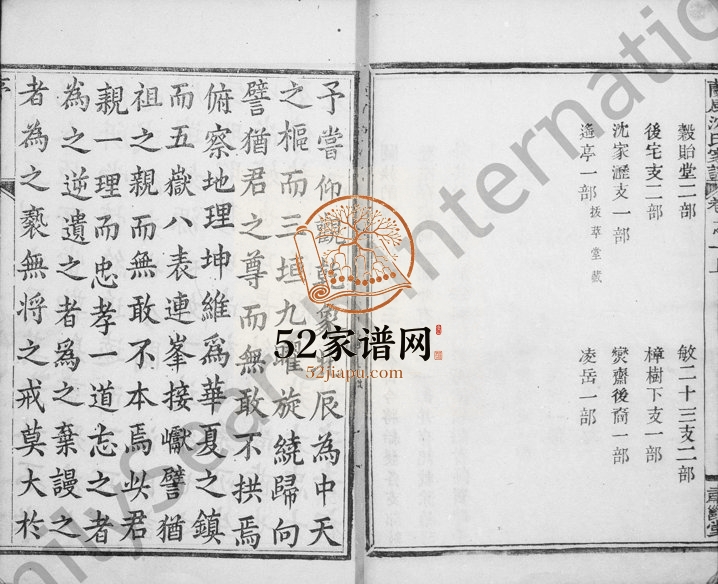 穀貽堂二部 敏二十三支二部
後宅支二部 樟樹下支一部
沈家瀝支一部 爕齋後裔一部
遙亭一部 拔萃堂藏 凌岳一部
予嘗仰觀乾象辰為中天
之樞而三垣九曜旋繞歸向
譬猶君之尊而無敢不拱焉
俯察地理坤維爲華夏之鎮
而五嶽八表連峯接巘譬猶
祖之親而無敢不本焉此君
親一理而忠孝一道忘之者
為之逆遺之者為之棄謾之
者為之褻無將之戒莫大於
序
52家谱网
52jiapu.com
FamilySearch Internatio